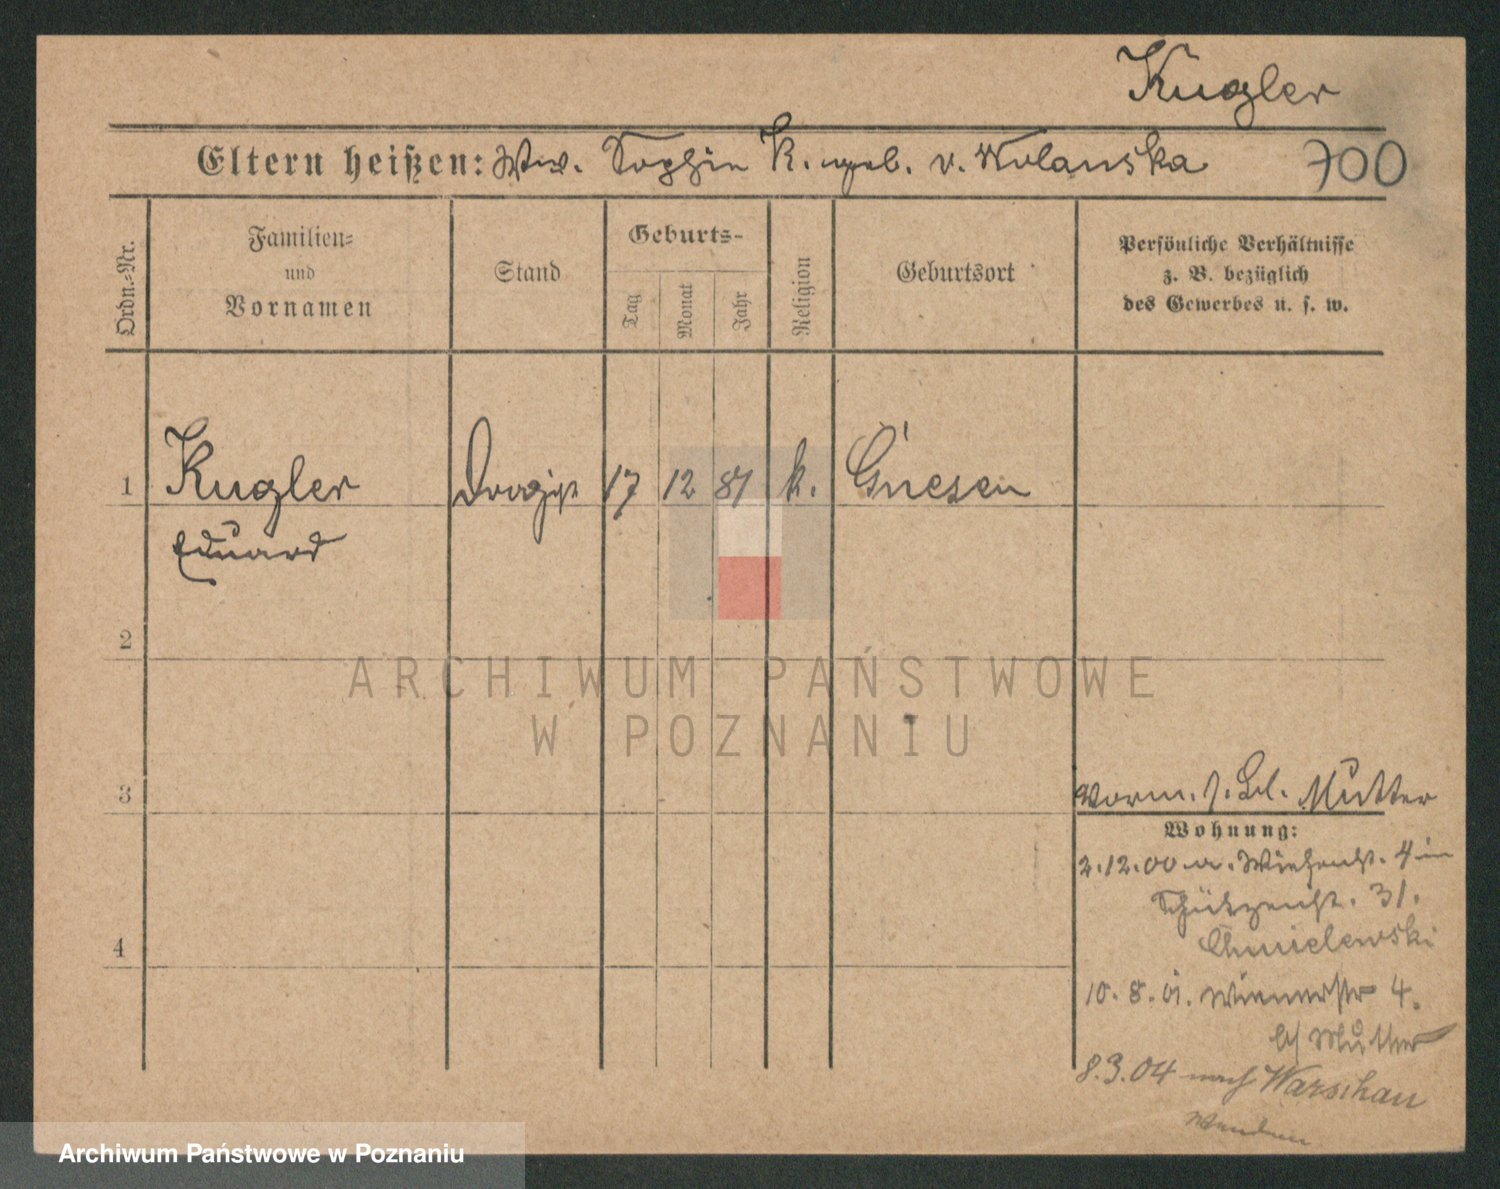 Kugler
Eltern heißen: Ww. Sophie K. geb. v. Wolanska 700
Ordn.-Nr.
Familien-
und
Vornamen
Stand
Geburts-
Tag
Monat
Jahr
Religion
Geburtsort
Persönliche Verhältnisse
z. B. bezüglich
des Gewerbes u. s. w.
1 Kugler Drogist 17 12 81 k. Gnesen
Eduard
2
ARCHIWUM PAŃSTWOWE
W POZNANIU
3
Mutter
Wohnung:
2.12.00 4 in
Schützenstr. 31.
Chmielewski
10. 8. 01. 4.
b/ Mutter
8.3.04 nach Warschau
4
Archiwum Państwowe w Poznaniu